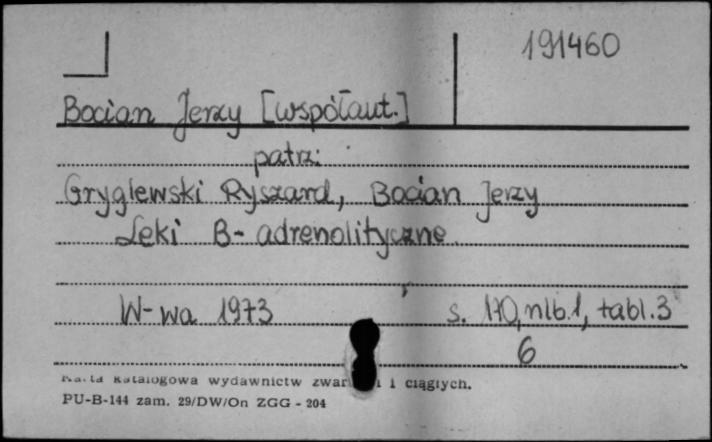 191460
Bocian Jerzy [współaut.]
patrz:
Gryglewski Ryszard, Bocian Jerzy
Leki B-adrenolityczne
W-wa 1973 s. 170, nlb.1, tabl.3
6
Karta katalogowa wydawnictw i ciągłych.
PU-B-144 zam. 29/DW/On ZGG - 204